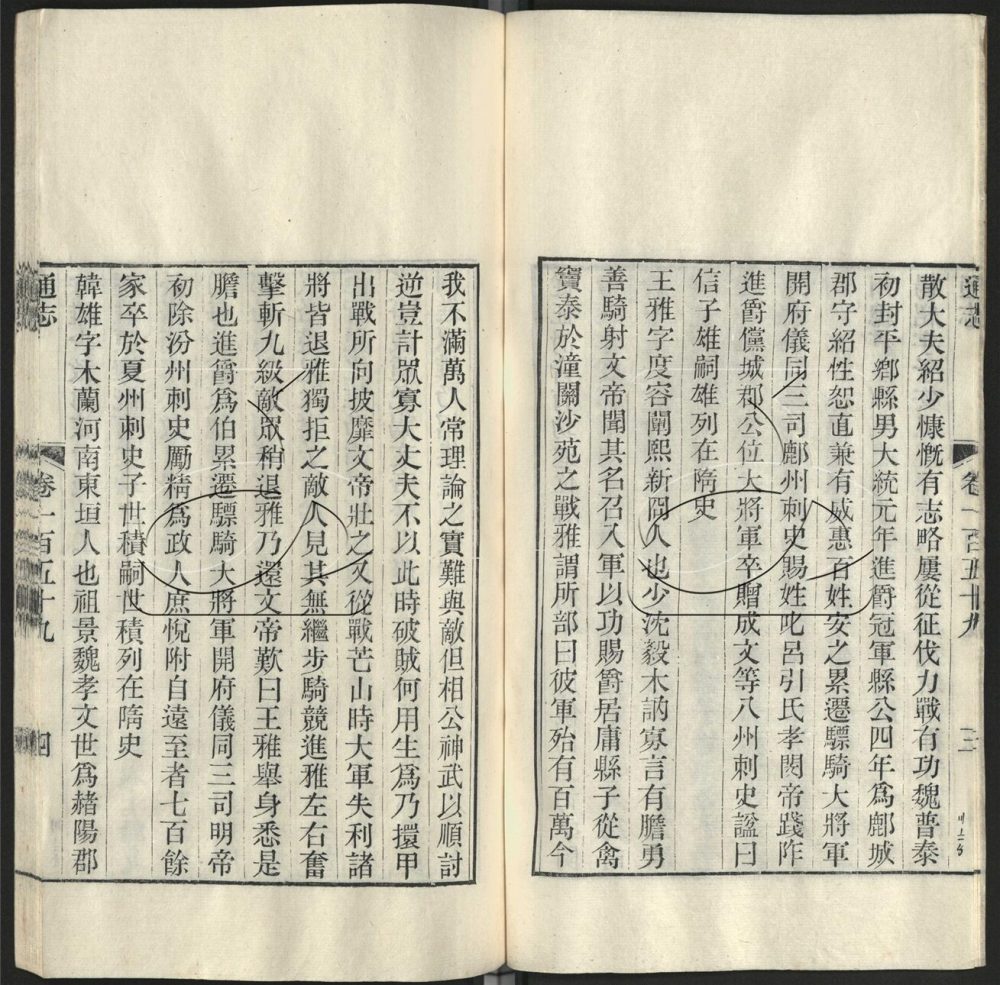 通志
卷一百五十九
三
散大夫紹少慷慨有志略屢從征伐力戰有功魏普泰
初封平鄉縣男大統元年進爵冠軍縣公四年爲鄜城
郡守紹性恕直兼有威惠百姓安之累遷驃騎大將軍
開府儀同三司鄜州刺史賜姓叱呂引氏孝閔帝踐阼
進爵儻城郡公位大將軍卒贈成文等八州刺史諡曰
信子雄嗣雄列在隋史
王雅字度容闡熙新𡇙人也少沈毅木訥寡言有膽勇
善騎射文帝聞其名召入軍以功賜爵居庸縣子從禽
竇泰於潼關沙苑之戰雅謂所部曰彼軍殆有百萬今
我不滿萬人常理論之實難與敵但相公神武以順討
逆豈計眾寡大丈夫不以此時破賊何用生爲乃擐甲
出戰所向披靡文帝壯之又從戰芒山時大軍失利諸
將皆退雅獨拒之敵人見其無繼步騎競進雅左右奮
擊斬九級敵眾稍退雅乃還文帝歎曰王雅舉身悉是
膽也進爵爲伯累遷驃騎大將軍開府儀同三司明帝
初除汾州刺史厲精爲政人庶悅附自遠至者七百餘
家卒於夏州刺史子世積嗣世積列在隋史
韓雄字木蘭河南東垣人也祖景魏孝文世爲赭陽郡
通志
卷一百五十九
四